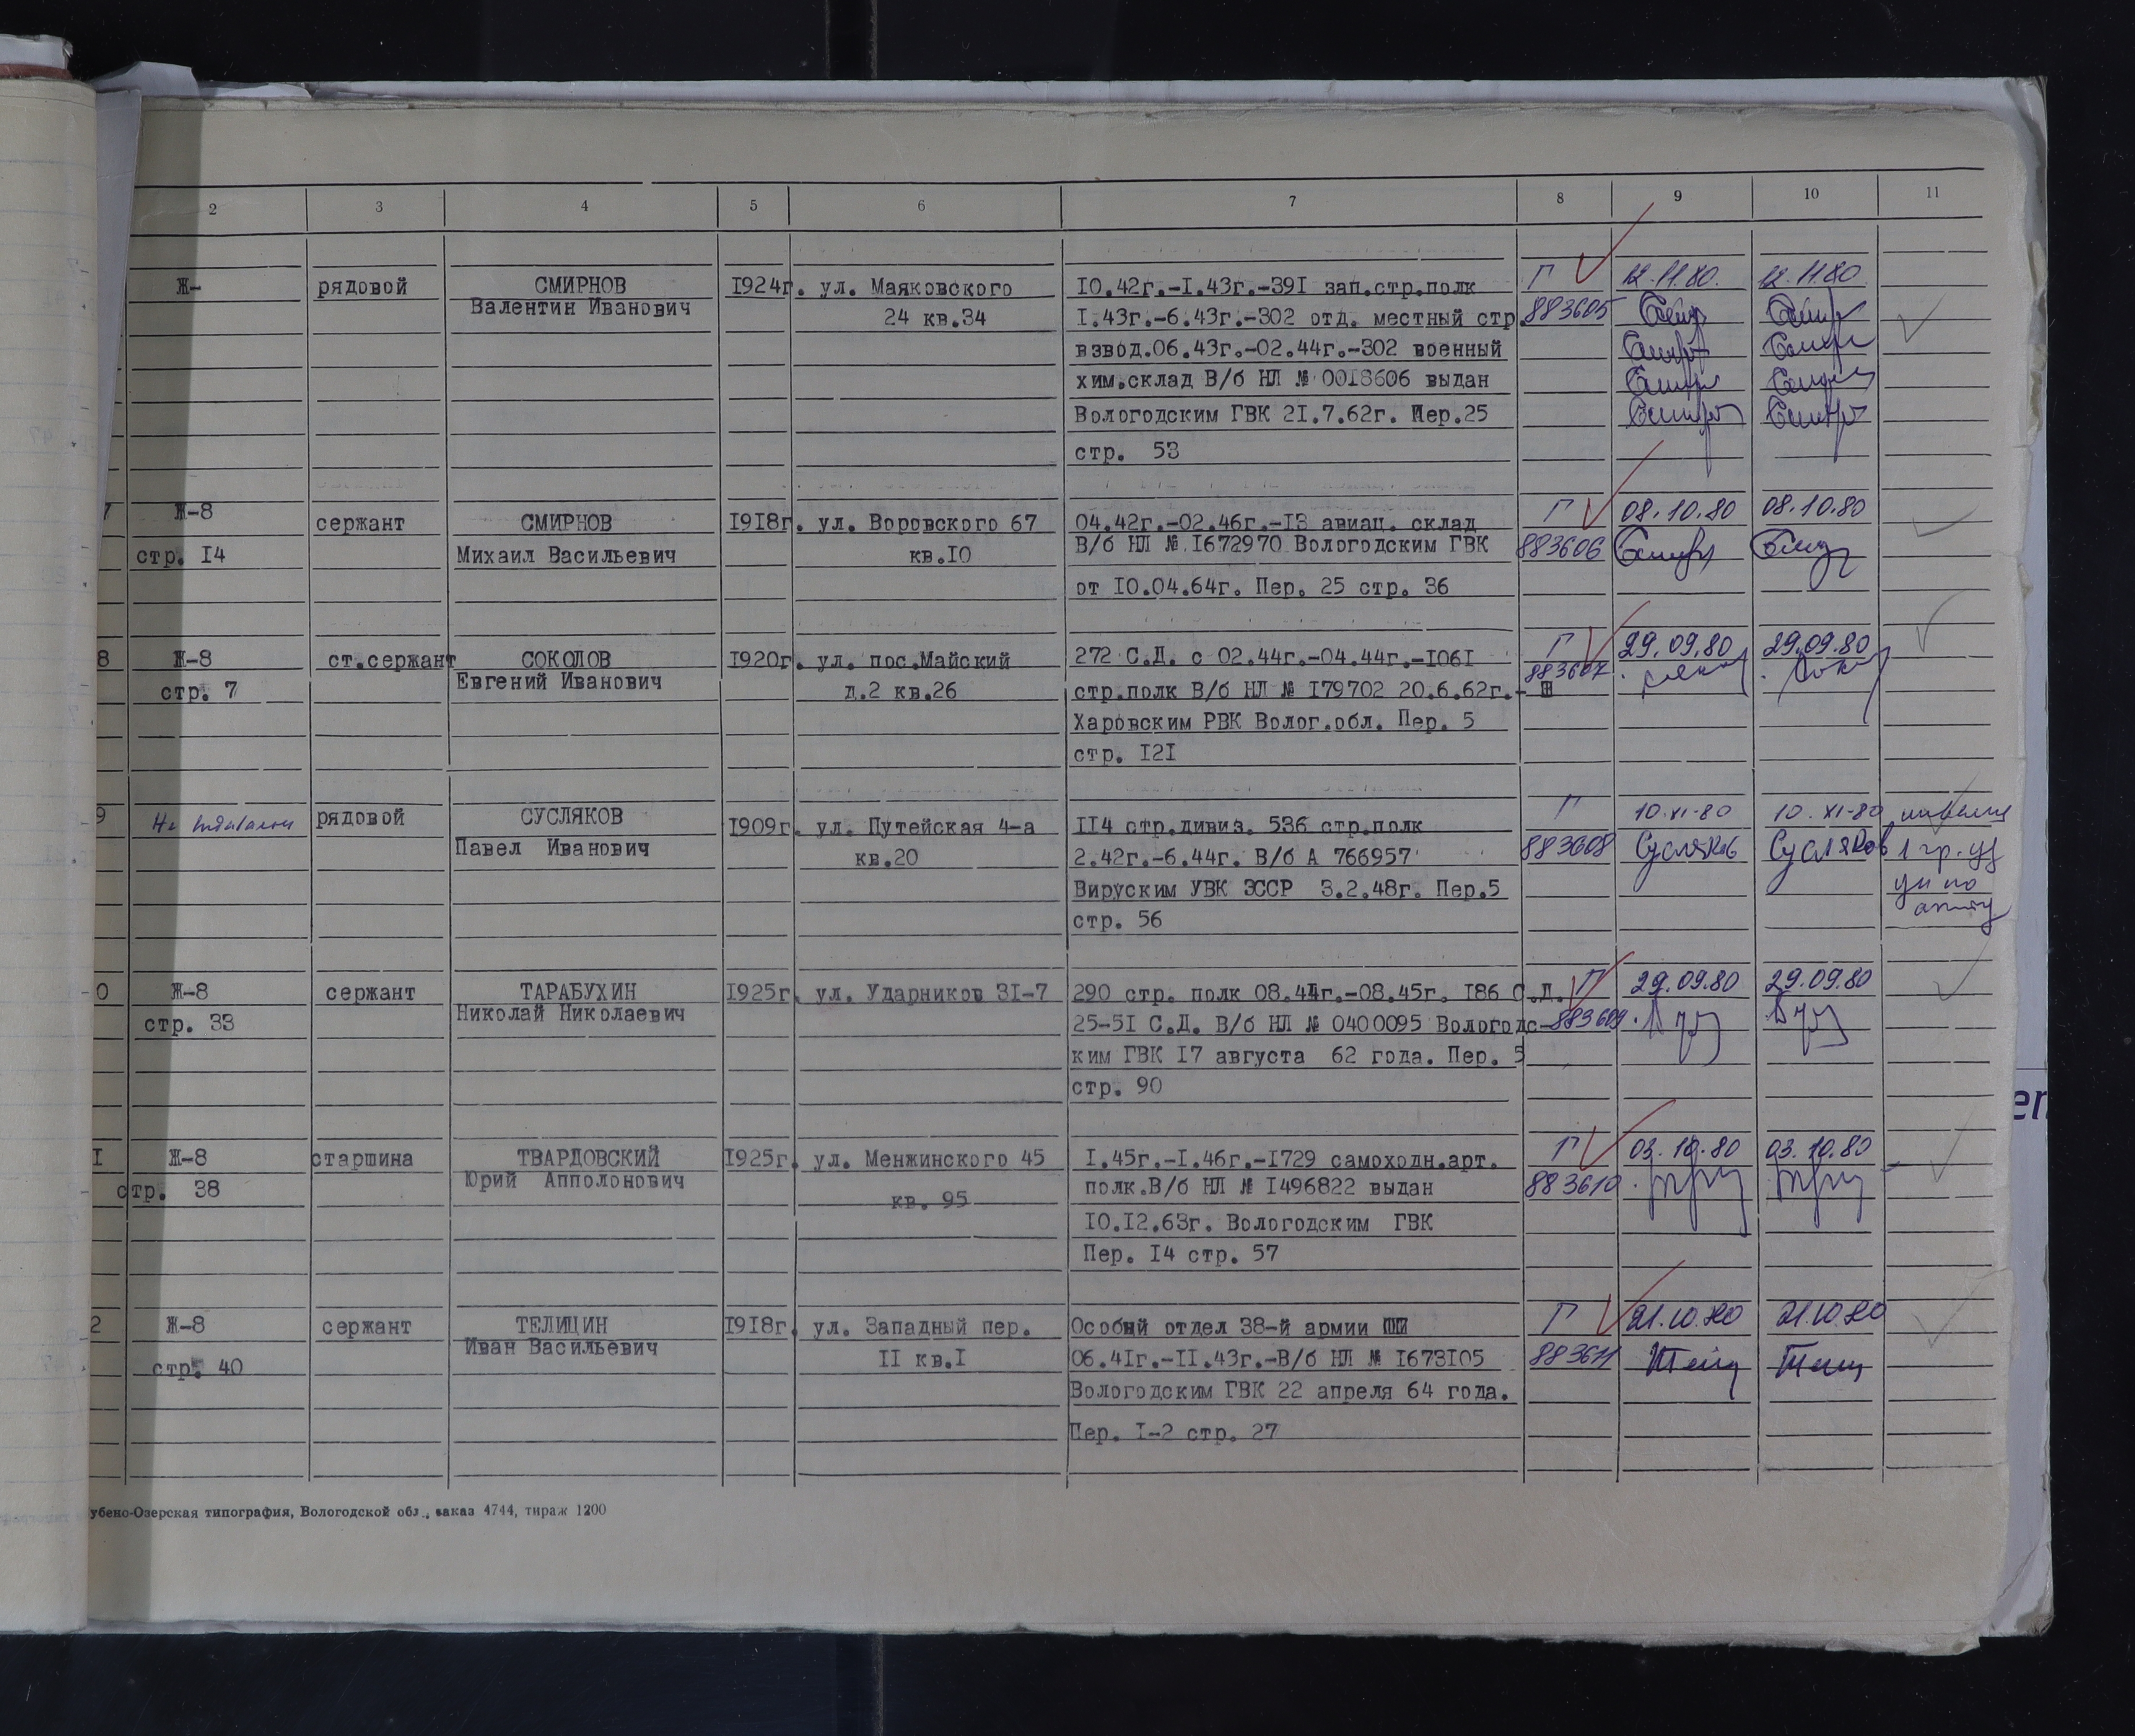 2 3 4 5 6 7 8 9 10 11
Ж- рядовой СМИРНОВ 1924г. ул. Маяковского 10.42г.-1.43г.-391 зап.стр.полк Г 12.11.80. 12.11.80
Валентин Иванович 24 кв.34 1.43г.-6.43г.-302 отд. местный стр. 883605
взвод.06.43г.-02.44г.-302 военный
хим.склад В/б НЛ № 0018606 выдан
Вологодским ГВК 21.7.62г. Пер.25
стр. 53
7 Ж-8 сержант СМИРНОВ 1918г. ул. Воровского 67 04.42г.-02.46г.-13 авиац. склад Г 08.10.80 08.10.80
стр. 14 Михаил Васильевич кв.10 В/б НЛ № 1672970 Вологодским ГВК 883606
от 10.04.64г. Пер. 25 стр. 36
8 Ж-8 ст.сержант СОКОЛОВ 1920г. ул. пос.Майский 272 С.Д. с 02.44г.-04.44г.-1061 Г 29.09.80 29.09.80
стр. 7 Евгений Иванович д.2 кв.26 стр.полк В/б НЛ № 179702 20.6.62г.- 883607
Харовским РВК Волог.обл. Пер. 5
стр. 121
9 рядовой СУСЛЯКОВ 1909г. ул. Путейская 4-а 114 стр.дивиз. 536 стр.полк Г 10.XI-80 10.XI-80
Павел Иванович кв.20 2.42г.-6.44г. В/б А 766957 883608 Сусляков Сусляков 1 гр.
Вируским УВК ЭССР 3.2.48г. Пер.5
стр. 56
0 Ж-8 сержант ТАРАБУХИН 1925г. ул. Ударников 31-7 290 стр. полк 08.44г.-08.45г. 186 С.Д. Г 29.09.80 29.09.80
стр. 33 Николай Николаевич 25-51 С.Д. В/б НЛ № 0400095 Вологодс- 883609
ким ГВК 17 августа 62 года. Пер. 5
стр. 90
1 Ж-8 старшина ТВАРДОВСКИЙ 1925г. ул. Менжинского 45 1.45г.-1.46г.-1729 самоходн.арт. Г 03.10.80 03.10.80
стр. 38 Юрий Апполонович кв. 95 полк.В/б НЛ № 1496822 выдан 883610
10.12.63г. Вологодским ГВК
Пер. 14 стр. 57
2 Ж-8 сержант ТЕЛИЦИН 1918г. ул. Западный пер. Особый отдел 38-й армии Г 21.10.80 21.10.80
стр. 40 Иван Васильевич 11 кв.1 06.41г.-11.43г.-В/б НЛ № 1673105 883611
Вологодским ГВК 22 апреля 64 года.
Пер. 1-2 стр. 27
убено-Озерская типография, Вологодской обл., заказ 4744, тираж 1200